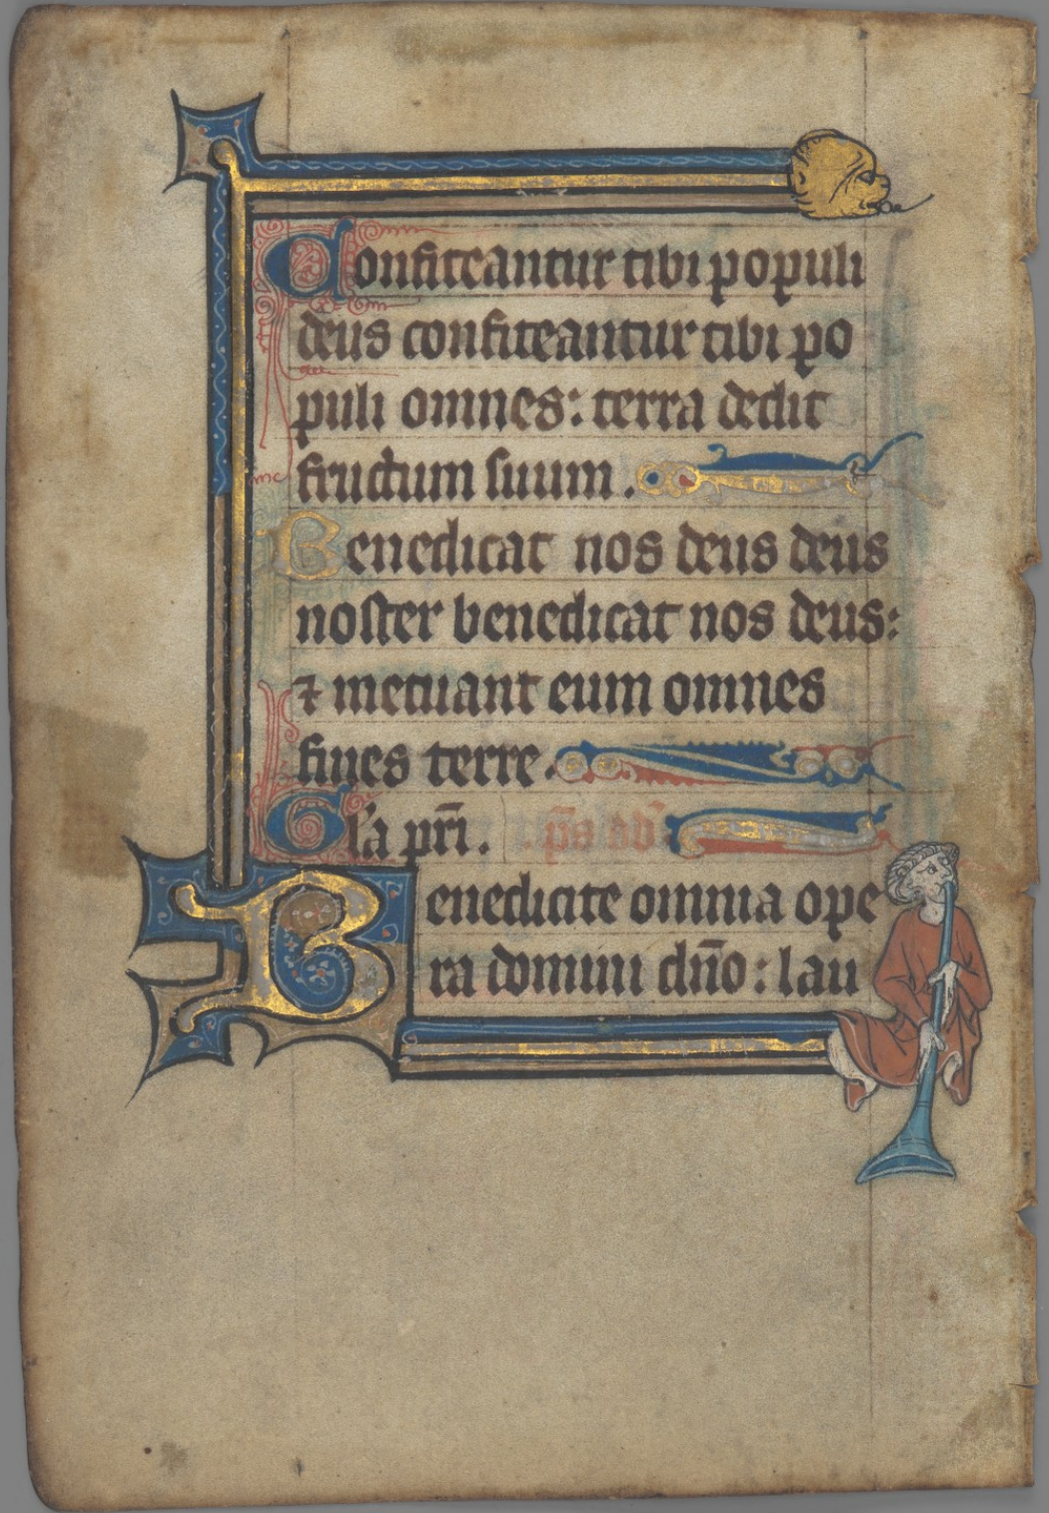 Confiteantur tibi populi
deus confiteantur tibi po
puli omnes: terra dedit
fructum suum.
Benedicat nos deus deus
noster benedicat nos deus:
⁊ metuant eum omnes
fines terre.
Gl'a pr̄i. ps̄ ad
Benedicite omnia ope
ra domini dn̄o: lau